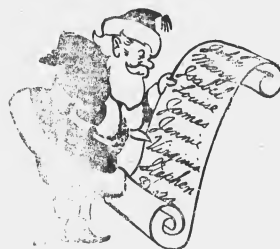 Mary
Isabel
Louise
James
Jennie
Virginia
Stephen